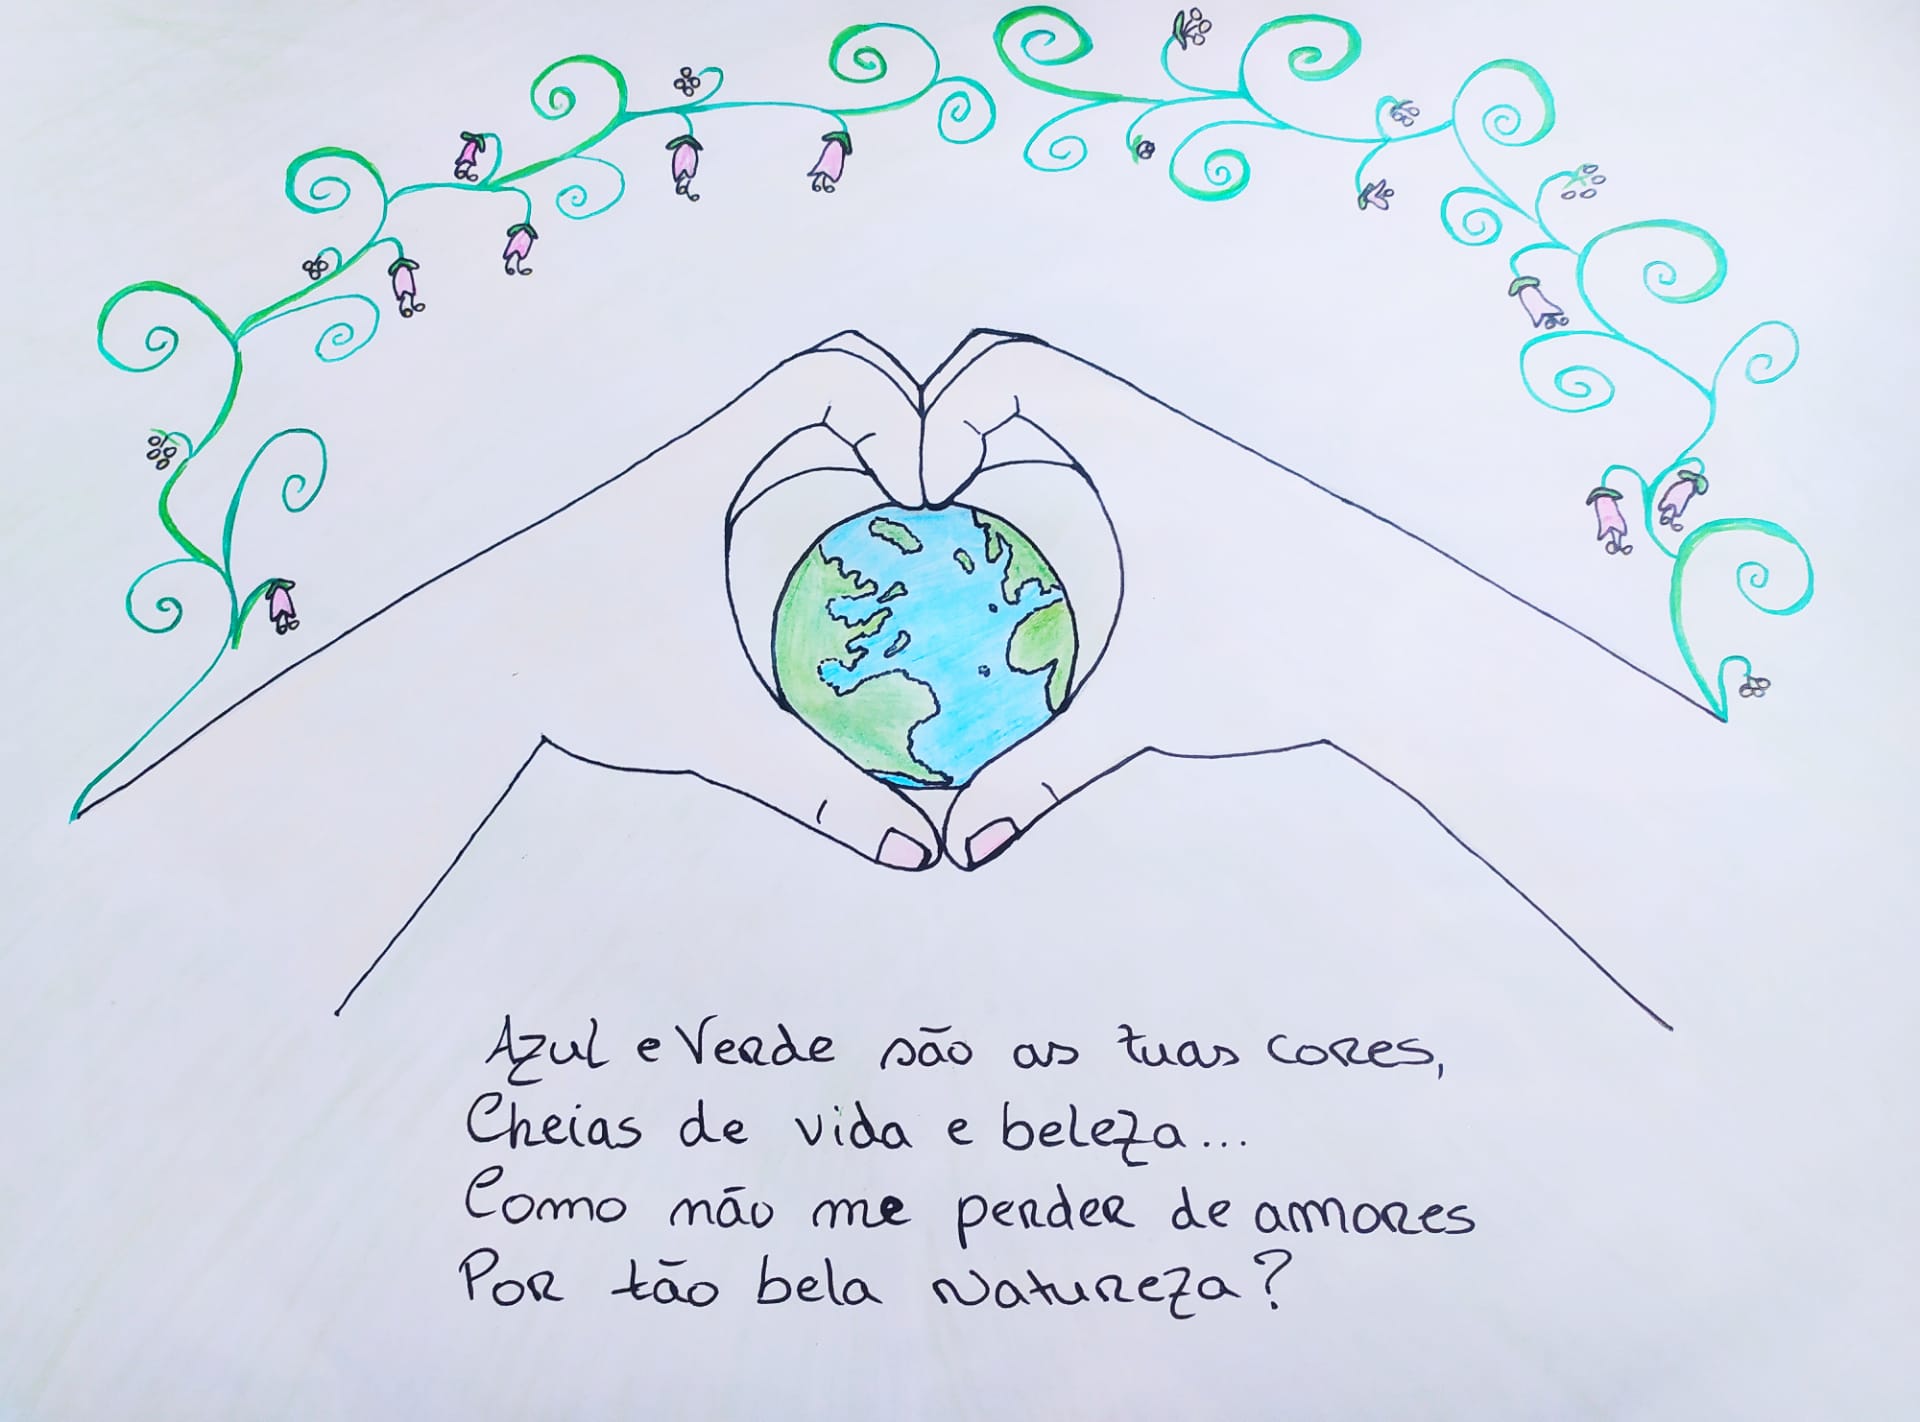 Azul e Verde são as tuas cores,
Cheias de vida e beleza...
Como não me perder de amores
Por tão bela Natureza?